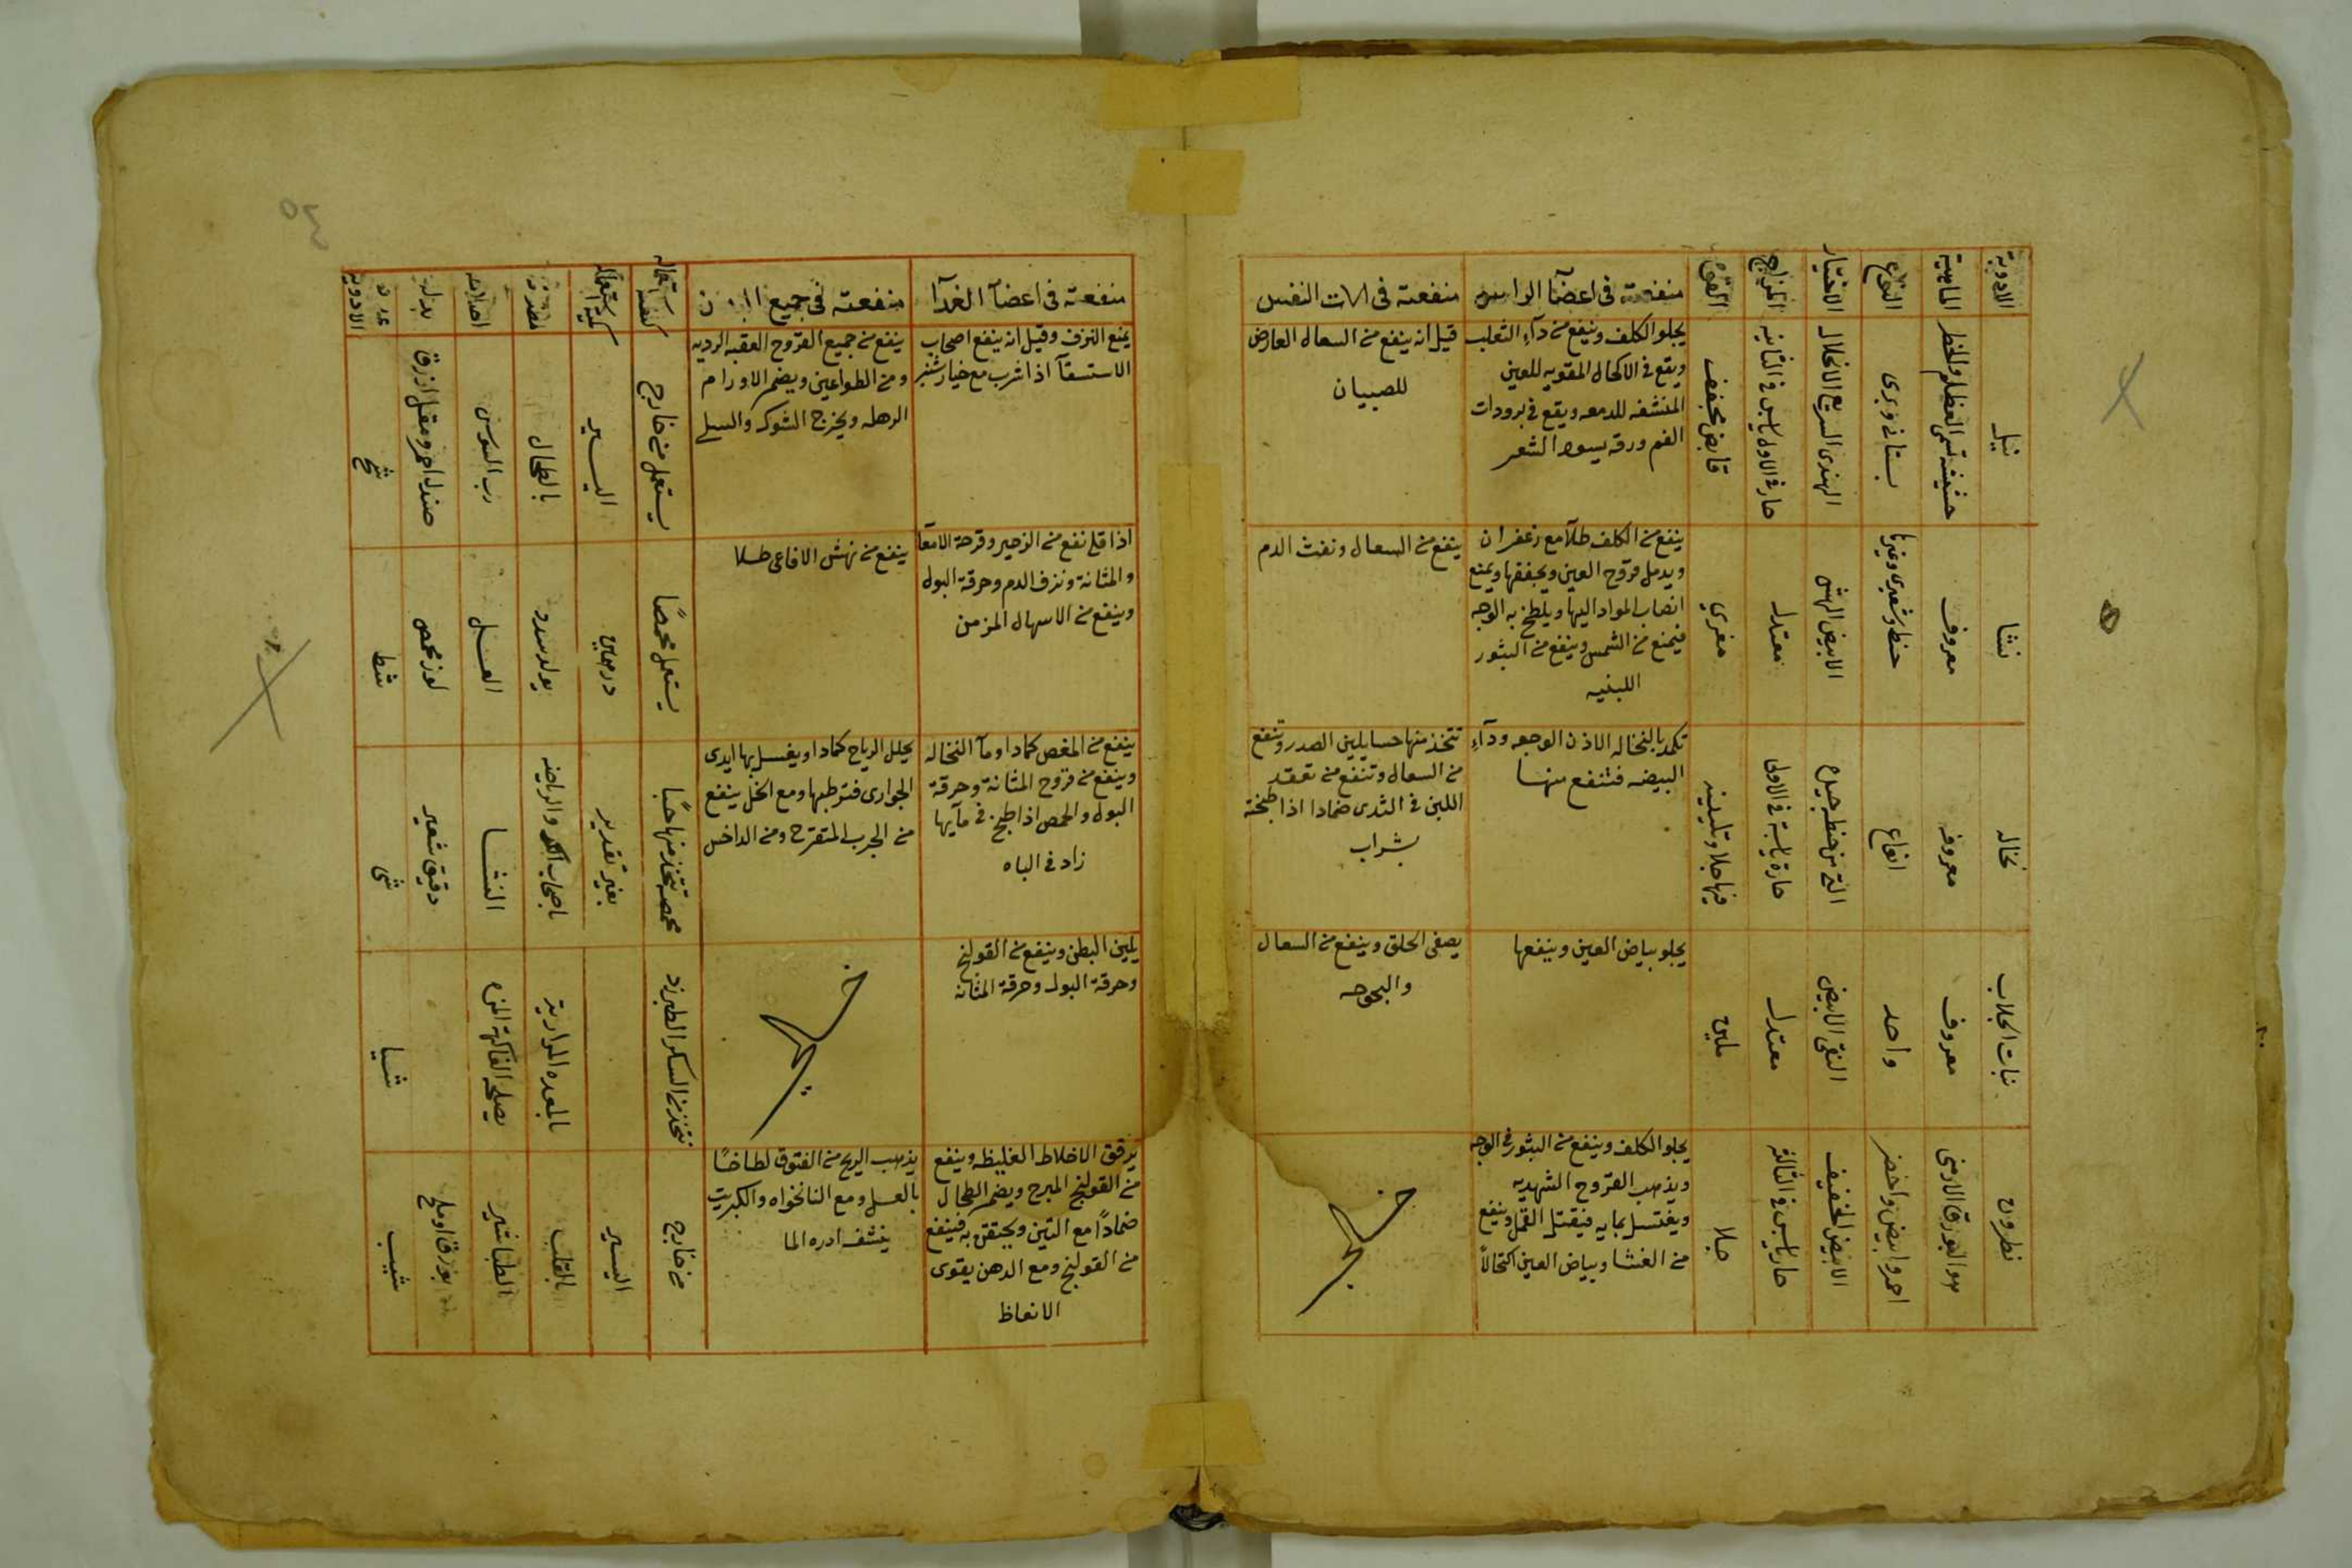 الادوية
الماهية
النوع
الاختيار
المزاج
القوة
منفعته فى اعضآ الراس
منفعته فى الات النفس
نيل
حشيشة تسمى العظلم والخطر
بستانى وبرى
الهندى السريع الانحلال
حار فى الاولى يابس فى الثانيه
قابض مجفف
يجلو الكلف وينفع من دآء الثعلب
ويقع فى الاكحال المقويه للعين
المنشفه للدمعه ويقع فى برودات
الفم ورقه يسود الشعر
قيل انه ينفع من السعال العارض
للصبيان
نشا
معروف
حنطى وشعيرى وغيرها
الابيض الهش
معتدل
مغرى
ينفع من الكلف طلآ مع زعفران
ويدمل قروح العين ويجففها ويمنع
انصاب المواد اليها ويلطخ به الوجه
فيمنع من الشمس وينفع من البثور
اللبنيه
ينفع من السعال ونفث الدم
نخاله
معروفه
انواع
التى من حنطه جيده
حارة يابسة فى الاولى
فيها جلا وتليينه
تكمد بالنخاله الاذن الوجعه ودآء
البيضه فتنفع منها
تتخذ منها حسا يلين الصدر وتنفع
من السعال وتنفع من تعقد
اللبن فى الثدى ضمادا اذا طبخة
بشراب
نبات الجلاب
معروف
واحد
النقى الابيض
معتدل
ملين
يجلو بياض العين وينفعها
يصفى الحلق وينفع من السعال
والبحوحه
نطرون
هو البورق الارمنى
احمر وابيض واخضر
الابيض الخفيف
حار يابس فى الثالثة
جلا
يجلو الكلف وينفع من البثور فى الوجه
ويذهب القروح الشهديه
ويغتسل بمايه فيقتل القمل وينفع
من الغشا وبياض العين اكتحالاً
منفعته فى اعضآ الغدآ
منفعته فى جميع
كيفية استعماله
كمية استعماله
مضرته
اصلاحه
بدله
الادوية
يمنع النزف وقيل انه ينفع اصحاب
الاستسقآ اذا شرب مع خيارشنبر
ينفع من جميع القروح العفنه الرديه
ومن الطواعين ويضمر الاورام
الرهله ويخرج الشوك والسلى
يستعمل من خارج
اليسير
بالطحال
رب السوس
صندل احمر ومقل ازرق
شح
اذا قلى نفع من الزحير وقرحة الامعآ
والمثانة ونزف الدم وحرقة البول
وينفع من الاسهال المزمن
ينفع من نهش الافاعى طلا
يستعمل محمصًا
درهمين
يولد سدد
العسل
لوز محمص
شط
ينفع من المغص كمادا ومآ النخاله
وينفع من قروح المثانة وحرقة
البول والحمص اذا طبخ فى مآيها
زاد فى الباه
يحلل الرياح كمادا ويغسل بها ايدى
الجوارى فترطبها ومع الخل ينفع
من الجرب المتقرح ومن الداخس
محمصه تتخذ منها حسًا
بغير تقدير
باصحاب الكد والرياضه
النشا
دقيق شعير
شى
يلين البطن وينفع من القولنج
وحرقة البول وحرقة المثانه
تتخذ من السكر الطبرزد
بالمعده المرارية
يصلحه الفاكهة المزه
شيا
يرقق الاخلاط الغليظه وينفع
من القولنج المبرح ويضمر الطحال
ضمادًا مع التين ويحتقن به فينفع
من القولنج ومع الدهن يقوى
الانعاظ
يذهب الريح من الفتوق لطاخًا
بالعسل ومع النانخواه والكبريت
ينشف ادره الما
من خارج
اليسير
بالقلب
الطباشير
بورق او ملح
شيب